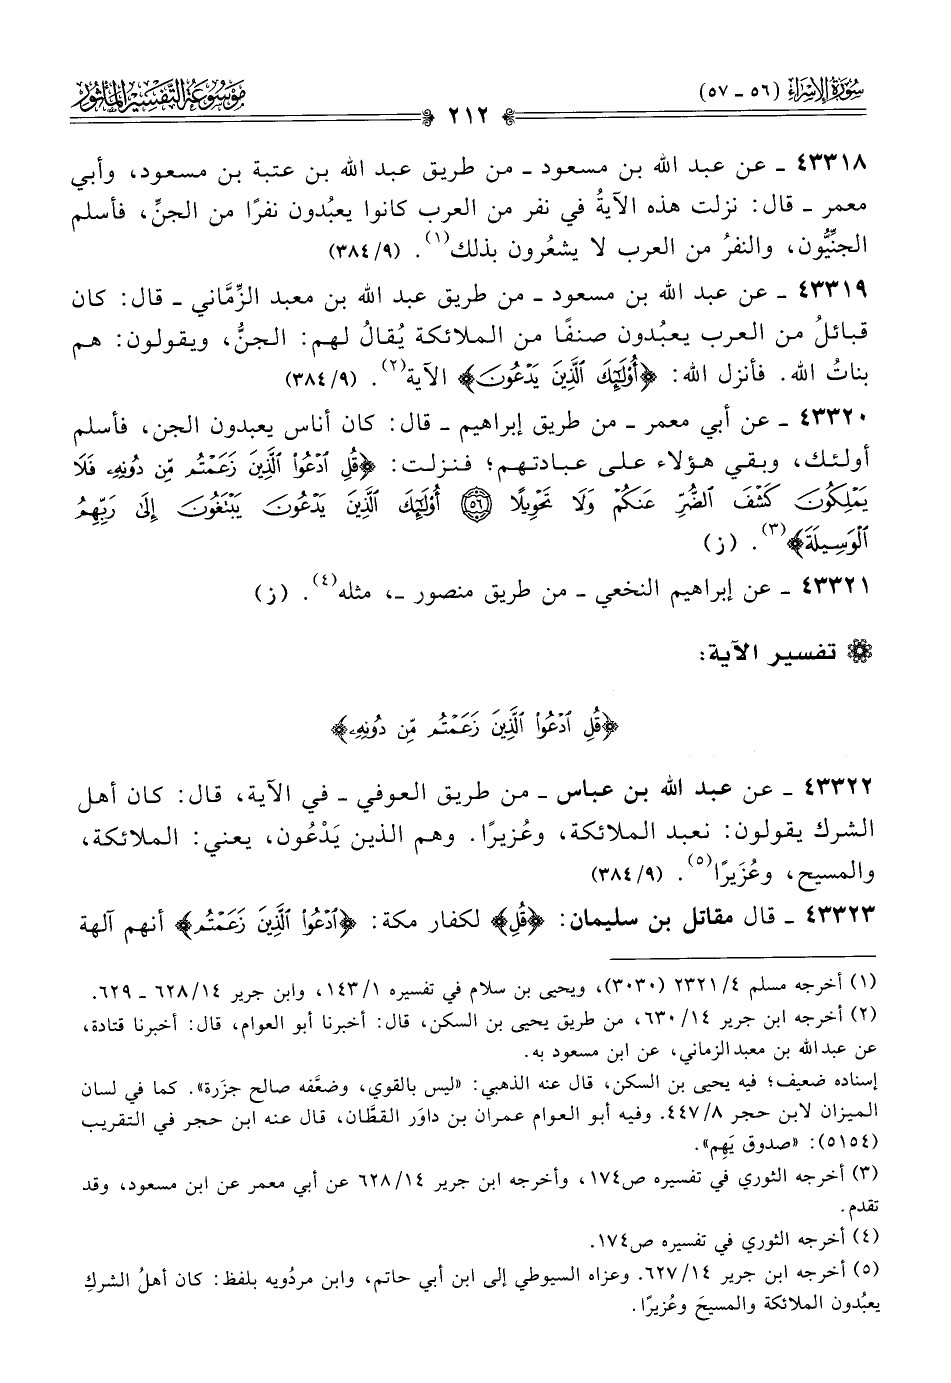 سُورَةُ الإِسْرَاءِ (٥٦ - ٥٧)
٢١٢
مَوْسُوعَةُ التَّفْسِيرِ المَأْثُورِ
٤٣٣١٨ - عن عبد الله بن مسعود - من طريق عبد الله بن عتبة بن مسعود، وأبي
معمر - قال: نزلت هذه الآيةُ في نفر من العرب كانوا يعبُدون نفرًا من الجنِّ، فأسلم
الجنِّيُّون، والنفرُ من العرب لا يشعُرون بذلك(١). (٩/ ٣٨٤)
٤٣٣١٩ - عن عبد الله بن مسعود - من طريق عبد الله بن معبد الزِّمَّاني - قال: كان
قبائلُ من العرب يعبُدون صنفًا من الملائكة يُقالُ لهم: الجنُّ، ويقولون: هم
بناتُ الله. فأنزل الله: ﴿أُوْلَٰٓئِكَ ٱلَّذِينَ يَدۡعُونَ﴾ الآية(٢). (٩/ ٣٨٤)
٤٣٣٢٠ - عن أبي معمر - من طريق إبراهيم - قال: كان أناس يعبدون الجن، فأسلم
أولئك، وبقي هؤلاء على عبادتهم؛ فنزلت: ﴿قُلِ ٱدۡعُواْ ٱلَّذِينَ زَعَمۡتُم مِّن دُونِهِۦ فَلَا
يَمۡلِكُونَ كَشۡفَ ٱلضُّرِّ عَنكُمۡ وَلَا تَحۡوِيلًا ٥٦ أُوْلَٰٓئِكَ ٱلَّذِينَ يَدۡعُونَ يَبۡتَغُونَ إِلَىٰ رَبِّهِمُ
ٱلۡوَسِيلَةَ﴾(٣). (ز)
٤٣٣٢١ - عن إبراهيم النخعي - من طريق منصور -، مثله(٤). (ز)
تفسير الآية:
﴿قُلِ ٱدۡعُواْ ٱلَّذِينَ زَعَمۡتُم مِّن دُونِهِۦ﴾
٤٣٣٢٢ - عن عبد الله بن عباس - من طريق العوفي - في الآية، قال: كان أهل
الشرك يقولون: نعبد الملائكة، وعُزيرًا. وهم الذين يَدْعُون، يعني: الملائكة،
والمسيح، وعُزَيرًا(٥). (٩/ ٣٨٤)
٤٣٣٢٣ - قال مقاتل بن سليمان: ﴿قُلِ﴾ لكفار مكة: ﴿ٱدۡعُواْ ٱلَّذِينَ زَعَمۡتُم﴾ أنهم آلهة
(١) أخرجه مسلم ٤/ ٢٣٢١ (٣٠٣٠)، ويحيى بن سلام في تفسيره ١/ ١٤٣، وابن جرير ١٤/ ٦٢٨ - ٦٢٩.
(٢) أخرجه ابن جرير ١٤/ ٦٣٠، من طريق يحيى بن السكن، قال: أخبرنا أبو العوام، قال: أخبرنا قتادة،
عن عبدالله بن معبدالزماني، عن ابن مسعود به.
إسناده ضعيف؛ فيه يحيى بن السكن، قال عنه الذهبي: «ليس بالقوي، وضعَّفه صالح جزَرة». كما في لسان
الميزان لابن حجر ٨/ ٤٤٧. وفيه أبو العوام عمران بن داوَر القطَّان، قال عنه ابن حجر في التقريب
(٥١٥٤): «صدوق يَهِم».
(٣) أخرجه الثوري في تفسيره ص١٧٤، وأخرجه ابن جرير ١٤/ ٦٢٨ عن أبي معمر عن ابن مسعود، وقد
تقدم.
(٤) أخرجه الثوري في تفسيره ص١٧٤.
(٥) أخرجه ابن جرير ١٤/ ٦٢٧. وعزاه السيوطي إلى ابن أبي حاتم، وابن مردُويه بلفظ: كان أهلُ الشركِ
يعبُدون الملائكة والمسيحَ وعُزيرًا.